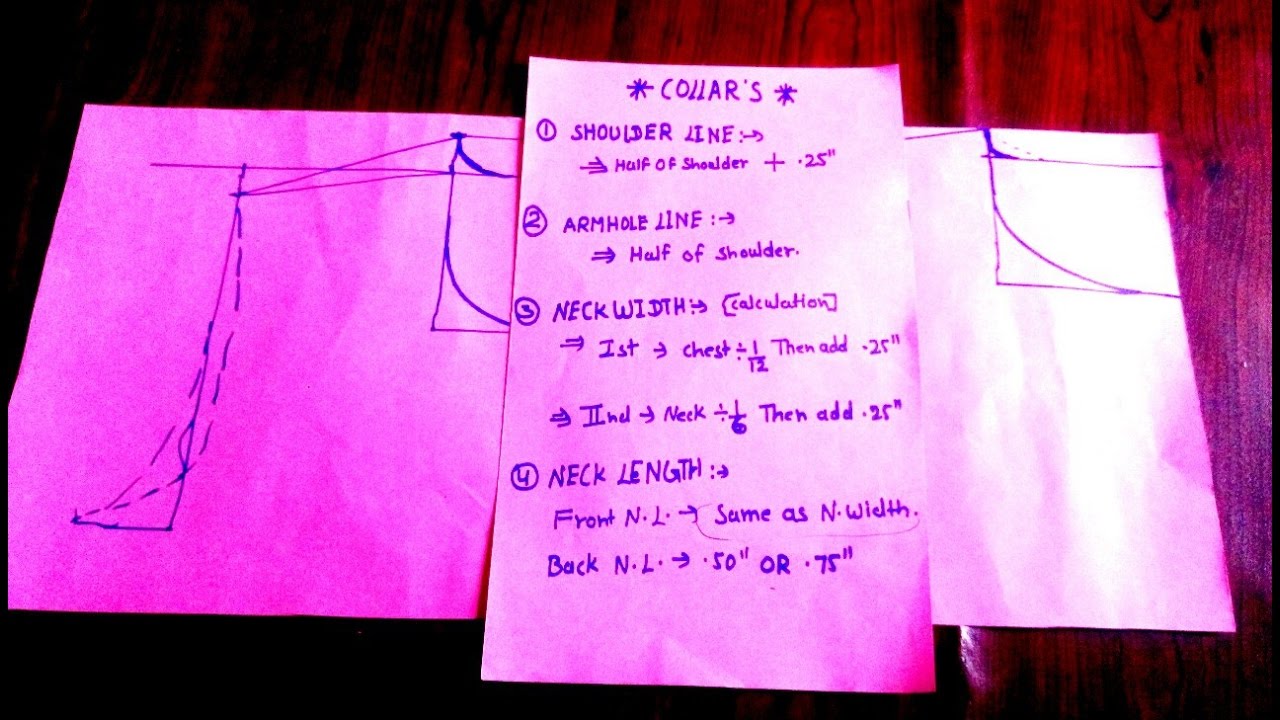 * COLLAR'S *
① SHOULDER LINE:→
⇒ Half of Shoulder + .25"
② ARMHOLE LINE:→
⇒ Half of Shoulder.
③ NECK WIDTH:→ [calculation]
⇒ Ist → Chest ÷ 1/12 Then add .25"
⇒ IInd → Neck ÷ 1/6 Then add .25"
④ NECK LENGTH:→
Front N.L. → Same as N.Width.
Back N.L. → .50" OR .75"